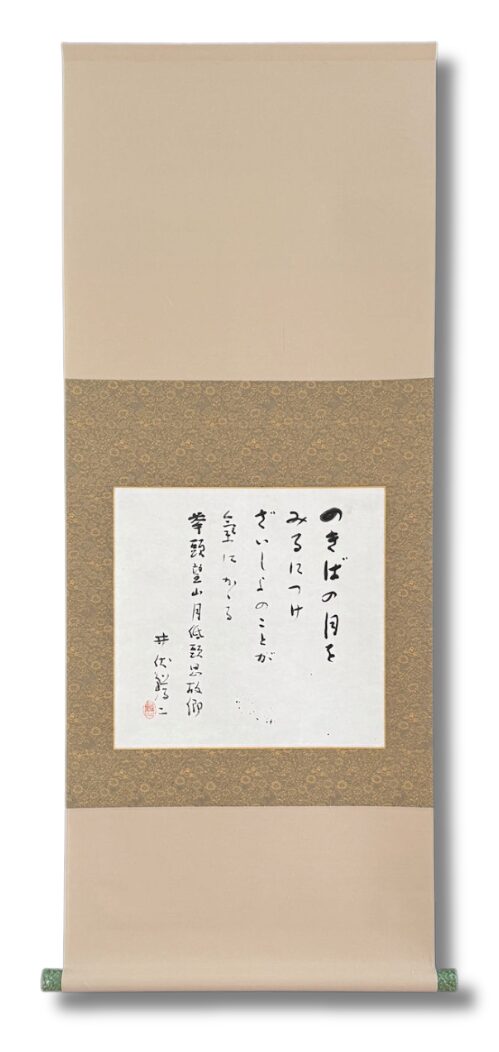 のきばの月を
みるにつけ
ざいしよのことが
気にかゝる
挙頭望山月低頭思故郷
井伏鱒二